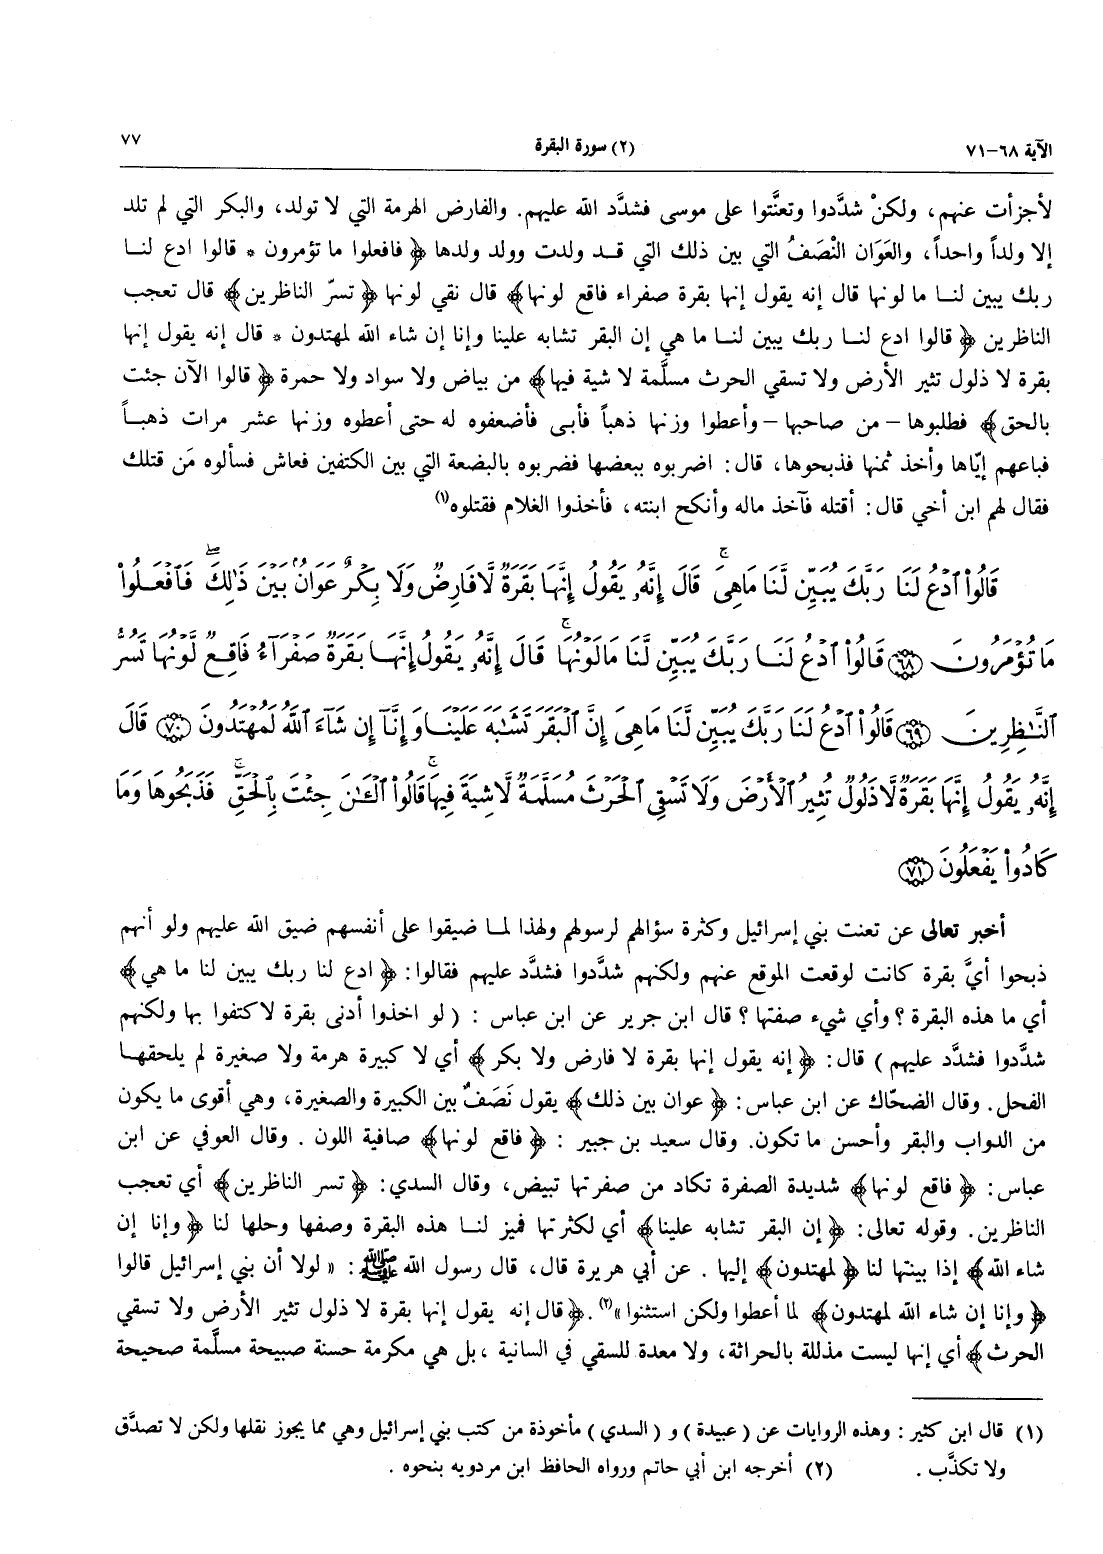 الآية ٦٨-٧١ (٢) سورة البقرة ٧٧
لأجزأت عنهم، ولكنْ شدَّدوا وتعنَّتوا على موسى فشدَّد الله عليهم. والفارض الهرمة التي لا تولد، والبكر التي لم تلد
إلا ولداً واحداً، والعَوَان النْصَفُ التي بين ذلك التي قد ولدت وولد ولدها ﴿ فافعلوا ما تؤمرون * قالوا ادع لنا
ربك يبين لنا ما لونها قال إنه يقول إنها بقرة صفراء فاقع لونها﴾ قال نقي لونها ﴿ تسرّ الناظرين﴾ قال تعجب
الناظرين ﴿ قالوا ادع لنا ربك يبين لنا ما هي إن البقر تشابه علينا وإنا إن شاء الله لمهتدون * قال إنه يقول إنها
بقرة لا ذلول تثير الأرض ولا تسقي الحرث مسلَّمة لا شية فيها﴾ من بياض ولا سواد ولا حمرة ﴿ قالوا الآن جئت
بالحق﴾ فطلبوها - من صاحبها - وأعطوا وزنها ذهباً فأبى فأضعفوه له حتى أعطوه وزنها عشر مرات ذهباً
فباعهم إيّاها وأخذ ثمنها فذبحوها، قال: اضربوه ببعضها فضربوه بالبضعة التي بين الكتفين فعاش فسألوه مَن قتلك
فقال لهم ابن أخي قال: أقتله فآخذ ماله وأنكح ابنته، فأخذوا الغلام فقتلوه(١)
قَالُواْ ٱدْعُ لَنَا رَبَّكَ يُبَيِّن لَّنَا مَاهِىَ ۚ قَالَ إِنَّهُۥ يَقُولُ إِنَّهَا بَقَرَةٌ لَّا فَارِضٌ وَلَا بِكْرٌ عَوَانٌۢ بَيْنَ ذَٰلِكَ ۖ فَٱفْعَلُواْ
مَا تُؤْمَرُونَ ﴿٦٨﴾ قَالُواْ ٱدْعُ لَنَا رَبَّكَ يُبَيِّن لَّنَا مَا لَوْنُهَا ۚ قَالَ إِنَّهُۥ يَقُولُ إِنَّهَا بَقَرَةٌ صَفْرَآءُ فَاقِعٌ لَّوْنُهَا تَسُرُّ
ٱلنَّٰظِرِينَ ﴿٦٩﴾ قَالُواْ ٱدْعُ لَنَا رَبَّكَ يُبَيِّن لَّنَا مَاهِىَ إِنَّ ٱلْبَقَرَ تَشَٰبَهَ عَلَيْنَا وَإِنَّآ إِن شَآءَ ٱللَّهُ لَمُهْتَدُونَ ﴿٧٠﴾ قَالَ
إِنَّهُۥ يَقُولُ إِنَّهَا بَقَرَةٌ لَّا ذَلُولٌ تُثِيرُ ٱلْأَرْضَ وَلَا تَسْقِى ٱلْحَرْثَ مُسَلَّمَةٌ لَّا شِيَةَ فِيهَا ۚ قَالُواْ ٱلْـَٰٔنَ جِئْتَ بِٱلْحَقِّ ۚ فَذَبَحُوهَا وَمَا
كَادُواْ يَفْعَلُونَ ﴿٧١﴾
أخبر تعالى عن تعنت بني إسرائيل وكثرة سؤالهم لرسولهم ولهذا لما ضيقوا على أنفسهم ضيق الله عليهم ولو أنهم
ذبحوا أيَّ بقرة كانت لوقعت الموقع عنهم ولكنهم شدَّدوا فشدَّد عليهم فقالوا: ﴿ ادع لنا ربك يبين لنا ما هي﴾
أي ما هذه البقرة؟ وأي شيء صفتها؟ قال ابن جرير عن ابن عباس : (لو اخذوا أدنى بقرة لاكتفوا بها ولكنهم
شدَّدوا فشدَّد عليهم) قال: ﴿ إنه يقول إنها بقرة لا فارض ولا بكر﴾ أي لا كبيرة هرمة ولا صغيرة لم يلحقها
الفحل. وقال الضحّاك عن ابن عباس: ﴿ عوان بين ذلك﴾ يقول نَصَفٌ بين الكبيرة والصغيرة، وهي أقوى ما يكون
من الدواب والبقر وأحسن ما تكون. وقال سعيد بن جبير : ﴿ فاقع لونها﴾ صافية اللون . وقال العوفي عن ابن
عباس: ﴿ فاقع لونها﴾ شديدة الصفرة تكاد من صفرتها تبيض، وقال السدي: ﴿ تسر الناظرين﴾ أي تعجب
الناظرين. وقوله تعالى: ﴿ إن البقر تشابه علينا﴾ أي لكثرتها فميز لنا هذه البقرة وصفها وحلها لنا ﴿ وإنا إن
شاء الله﴾ إذا بينتها لنا ﴿ لمهتدون﴾ إليها . عن أبي هريرة قال، قال رسول الله ﷺ : « لولا أن بني إسرائيل قالوا
﴿ وإنا إن شاء الله لمهتدون﴾ لما أعطوا ولكن استثنوا »(٢) . ﴿ قال إنه يقول إنها بقرة لا ذلول تثير الأرض ولا تسقي
الحرث﴾ أي إنها ليست مذللة بالحراثة، ولا معدة للسقي في السانية ،بل هي مكرمة حسنة صبيحة مسلَّمة صحيحة
(١) قال ابن كثير : وهذه الروايات عن (عبيدة) و (السدي) مأخوذة من كتب بني إسرائيل وهي مما يجوز نقلها ولكن لا تصدَّق
ولا تكذَّب . (٢) أخرجه ابن أبي حاتم ورواه الحافظ ابن مردويه بنحوه .